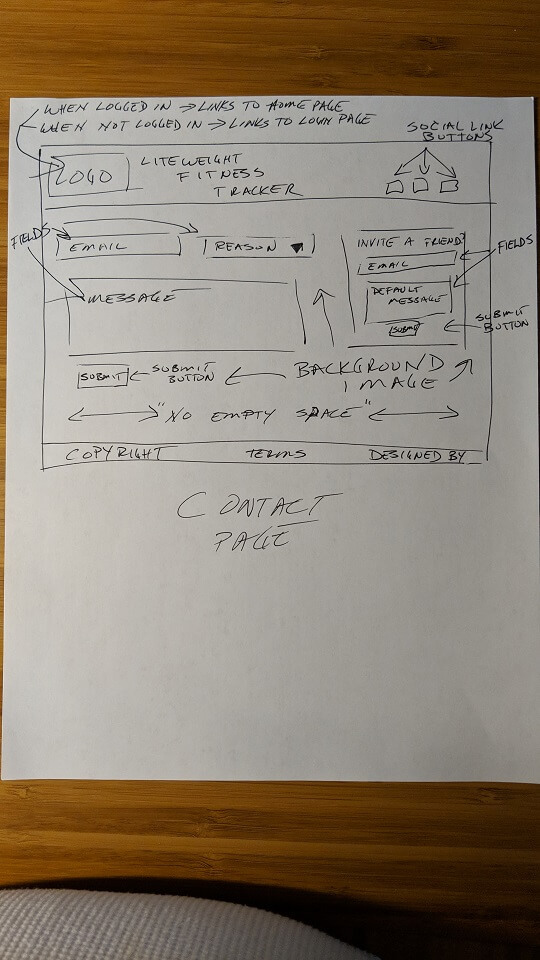 WHEN LOGGED IN → LINKS TO HOME PAGE
WHEN NOT LOGGED IN → LINKS TO LOGIN PAGE
SOCIAL LINK
BUTTONS
LOGO
LITEWEIGHT
FITNESS
TRACKER
FIELDS
EMAIL
REASON
INVITE A FRIEND
EMAIL
FIELDS
DEFAULT
MESSAGE
SUBMIT
SUBMIT
BUTTON
MESSAGE
SUBMIT
SUBMIT
BUTTON
BACKGROUND
IMAGE
"NO EMPTY SPACE"
COPYRIGHT
TERMS
DESIGNED BY
CONTACT
PAGE